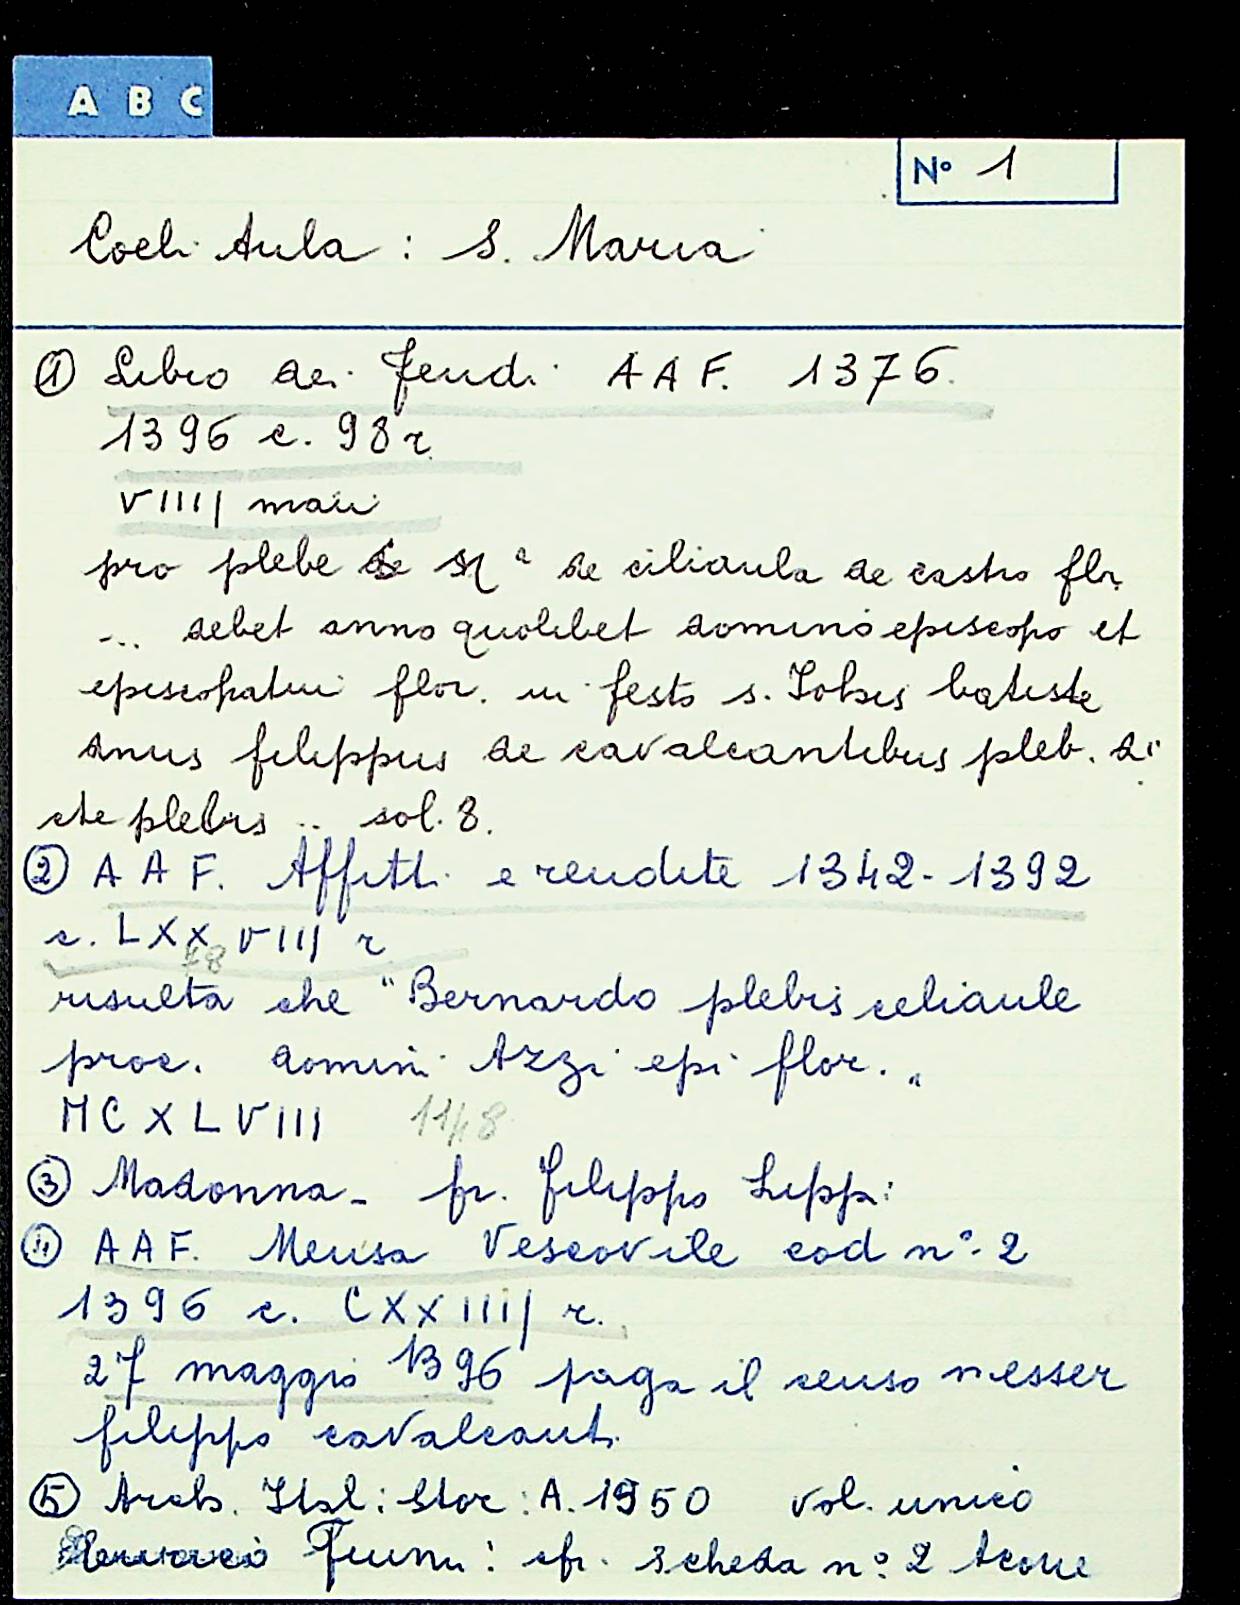 A B C
Nº 1
Coeli Aula : S. Maria
① Libro dei feudi AAF. 1376
1396 c. 98 r
VIIII maii
pro plebe de de ciliaula de castro flr.
... debet anno quolibet domino episcopo et
episcopatui flor. in festo s. Iohis batiste
dnus filippus de cavalcantibus pleb. di
cte plebis .. sol. 8.
② AAF. Affitti e rendite 1342-1392
c. LXXVIII r
78
risulta che "Bernardo plebis celiaule
proc. domini Azzi epi flor. "
MCXLVIII 1148
③ Madonna - fr. Filippo Lippi
④ AAF. Mensa Vescovile cod nº 2
1396 c. CXXIIII r.
27 maggio 1396 paga il censo messer
filippo cavalcanti
⑤ Arch. Ital: Stor: A. 1950 vol. unico
Fumi: cfr. scheda nº 2 Acone